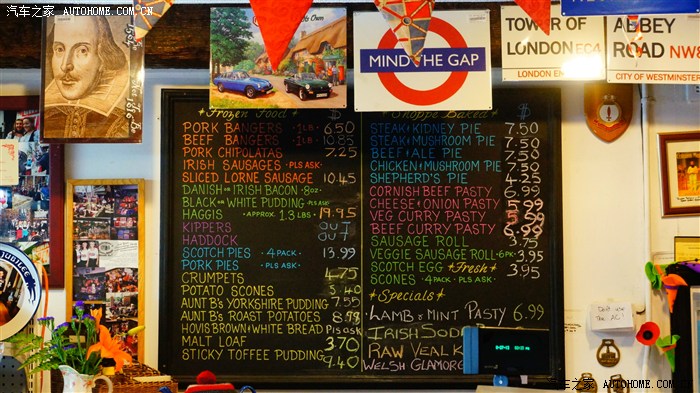 汽车之家 WWW.AUTOHOME.COM.CN
汽车之家 WWW.AUTOHOME.COM.CN
汽车之家 WWW.AUTOHOME.COM.CN
1564
1616
Own
MIND THE GAP
TOWER OF
LONDON EC4
LONDON EN
ABBEY
ROAD NW8
CITY OF WESTMINSTER
Frozen Food $
PORK BANGERS 1LB 6.50
BEEF BANGERS 1LB 10.85
PORK CHIPOLATAS 7.25
IRISH SAUSAGES - PLS ASK
SLICED LORNE SAUSAGE 10.45
DANISH OR IRISH BACON - 8oz
BLACK OR WHITE PUDDING - PLS ASK
HAGGIS - APPROX. 1.3 LBS 19.95
KIPPERS OUT
HADDOCK OUT
SCOTCH PIES - 4 PACK - 13.99
PORK PIES - PLS ASK
CRUMPETS 4.75
POTATO SCONES 5.40
AUNT B'S YORKSHIRE PUDDING 7.55
AUNT B'S ROAST POTATOES
HOVIS BROWN & WHITE BREAD Pls ask
MALT LOAF 3.70
STICKY TOFFEE PUDDING 9.40
Shoppe Baked $
STEAK & KIDNEY PIE 7.50
STEAK & MUSHROOM PIE 7.50
BEEF & ALE PIE 7.50
CHICKEN & MUSHROOM PIE 7.50
SHEPHERD'S PIE 4.25
CORNISH BEEF PASTY 6.99
CHEESE & ONION PASTY 5.99
VEG CURRY PASTY 5.69
BEEF CURRY PASTY 6.99
SAUSAGE ROLL 3.75
VEGGIE SAUSAGE ROLL - 6PK 3.95
SCOTCH EGG *Fresh* 3.95
SCONES - 4 PACK - PLS ASK
*Specials*
LAMB & MINT PASTY 6.99
IRISH SODA
RAW VEAL
WELSH GLAMORG
JUBILEE